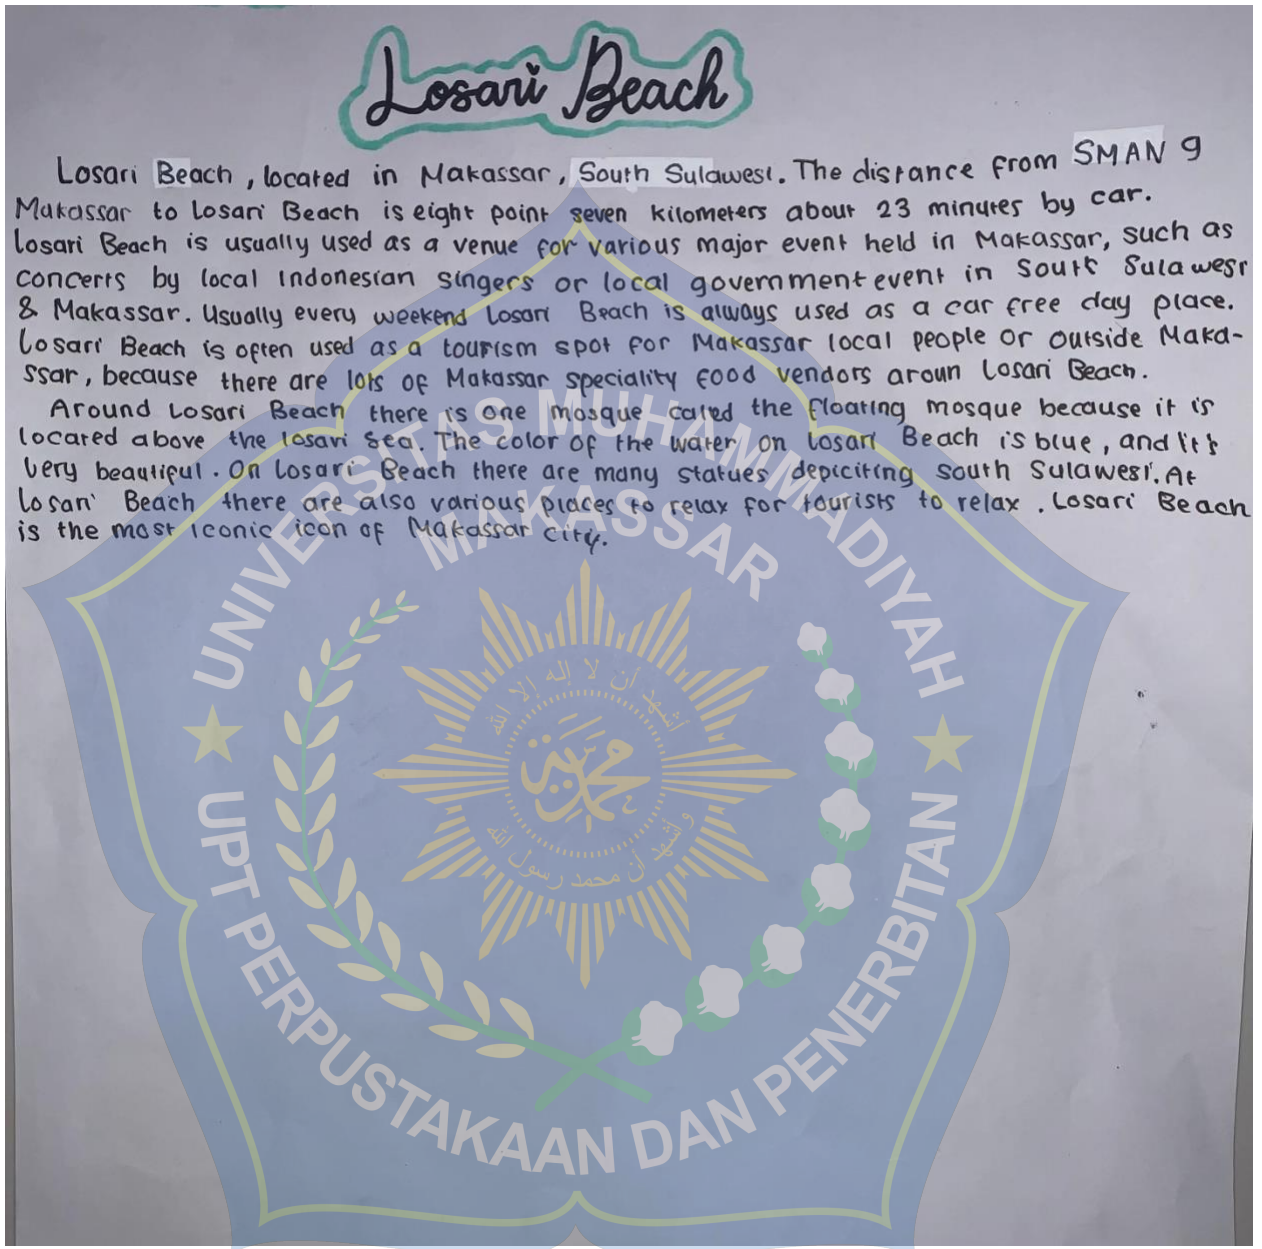 Losari Beach
Losari Beach, located in Makassar, South Sulawesi. The distance from SMAN 9
Makassar to Losari Beach is eight point seven kilometers about 23 minutes by car.
Losari Beach is usually used as a venue for various major event held in Makassar, such as
concerts by local Indonesian singers or local government event in South Sulawesi
& Makassar. Usually every weekend Losari Beach is always used as a car free day place.
Losari Beach is often used as a tourism spot for Makassar local people or outside Maka-
ssar, because there are lots of Makassar speciality food vendors aroun Losari Beach.
Around Losari Beach there is one mosque caled the floating mosque because it is
located above the losari sea. The color of the water on Losari Beach is blue, and it's
very beautiful. On Losari Beach there are many statues depiciting south Sulawesi. At
Losari Beach there are also various places to relax for tourists to relax. Losari Beach
is the most iconic icon of Makassar city.
UNIVERSITAS MUHAMMADIYAH
MAKASSAR
أشهد أن لا إله إلا الله
محمدية
وأشهد أن محمد رسول الله
UPT PERPUSTAKAAN DAN PENERBITAN